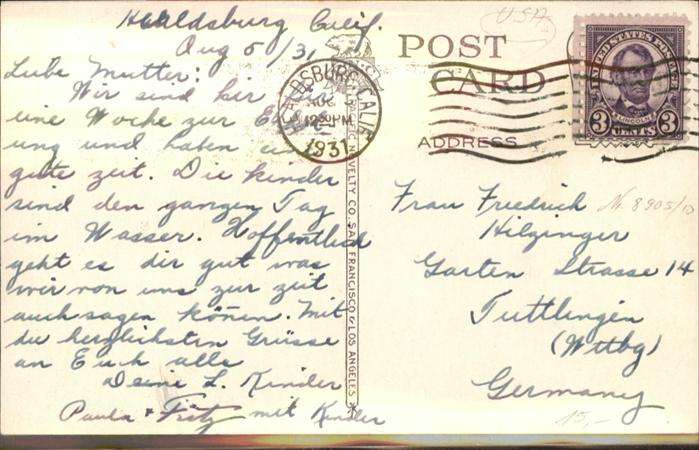 Healdsburg Calif.
Aug 5/31
Liebe Mutter:
Wir sind hir für
eine Woche zur
ung und haben eine
gute zeit. Die kinder
sind den ganzen Tag
im Wasser. Hoffentlich
geht es dir gut was
wir von uns zur zeit
auch sagen könen. Mit
die herzlichsten Grüsse
an Euch alle
Deine L. Kinder
Paula + Fritz mit Kinder
HEALDSBURG, CALIF.
AUG
5
12:30 PM
1931
NOVELTY CO. SAN FRANCISCO & LOS ANGELES
USA
POST
CARD
ADDRESS
UNITED STATES POSTAGE
LINCOLN
3 CENTS 3
Frau Friedrich
Nr 8905/10
Hilzinger
Garten Strasse 14
Tuttlingen
(Wttbg)
Germany
15,-